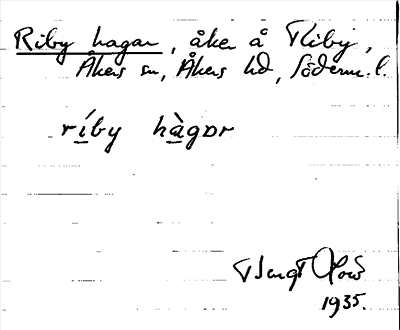 Riby hagar, åker å Riby,
Åkers sn, Åkers hd, Söderm. l.
ríby hàgɒr
Bengt
1935.